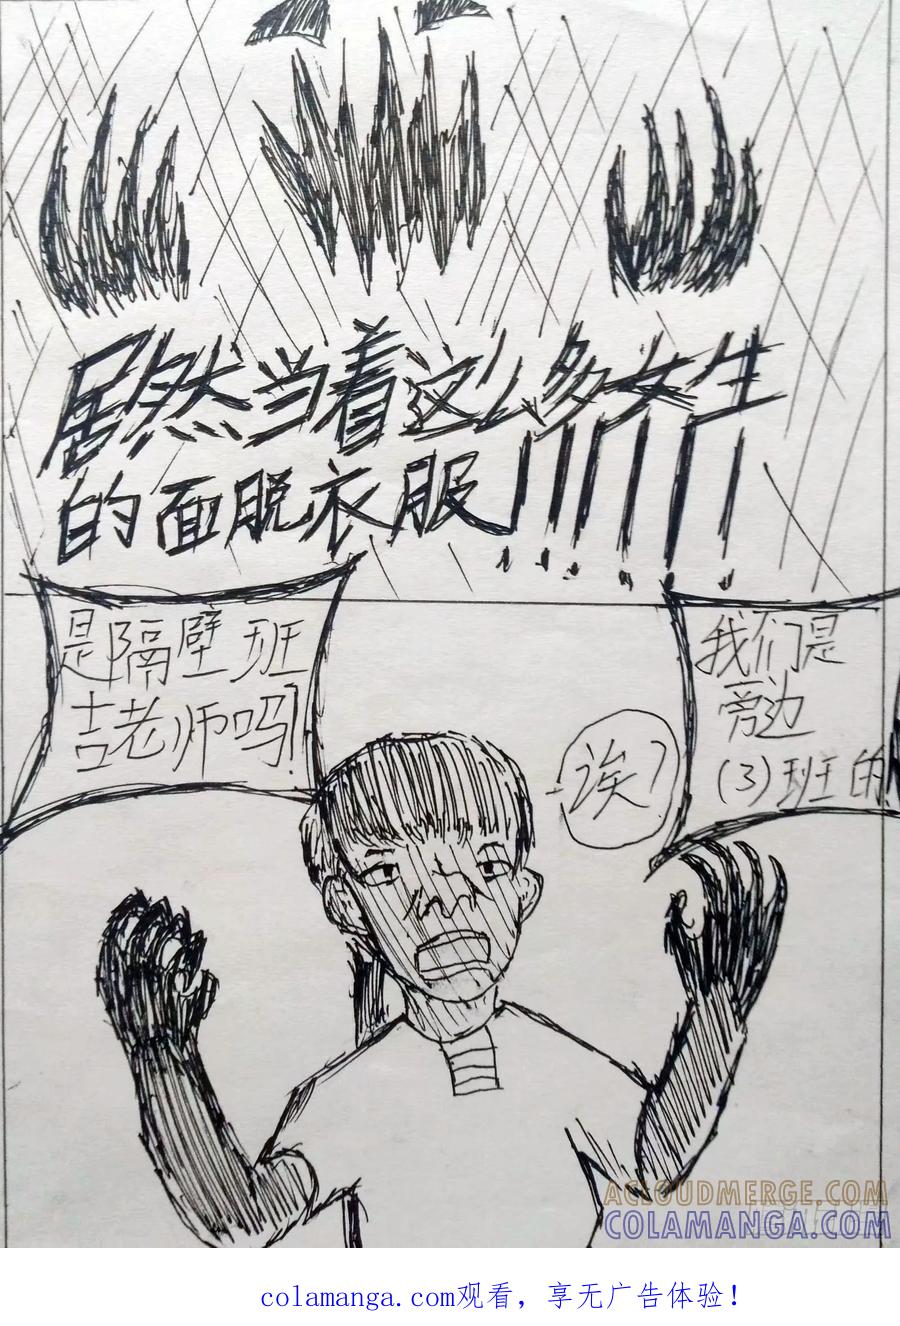 居然当着这么多女生
的面脱衣服!!!!!!
是隔壁班
吉老师吗!
诶?
我们是
旁边
(3)班的
ACLOUDMERGE.COM
COLAMANGA.COM
colamanga.com观看，享无广告体验！